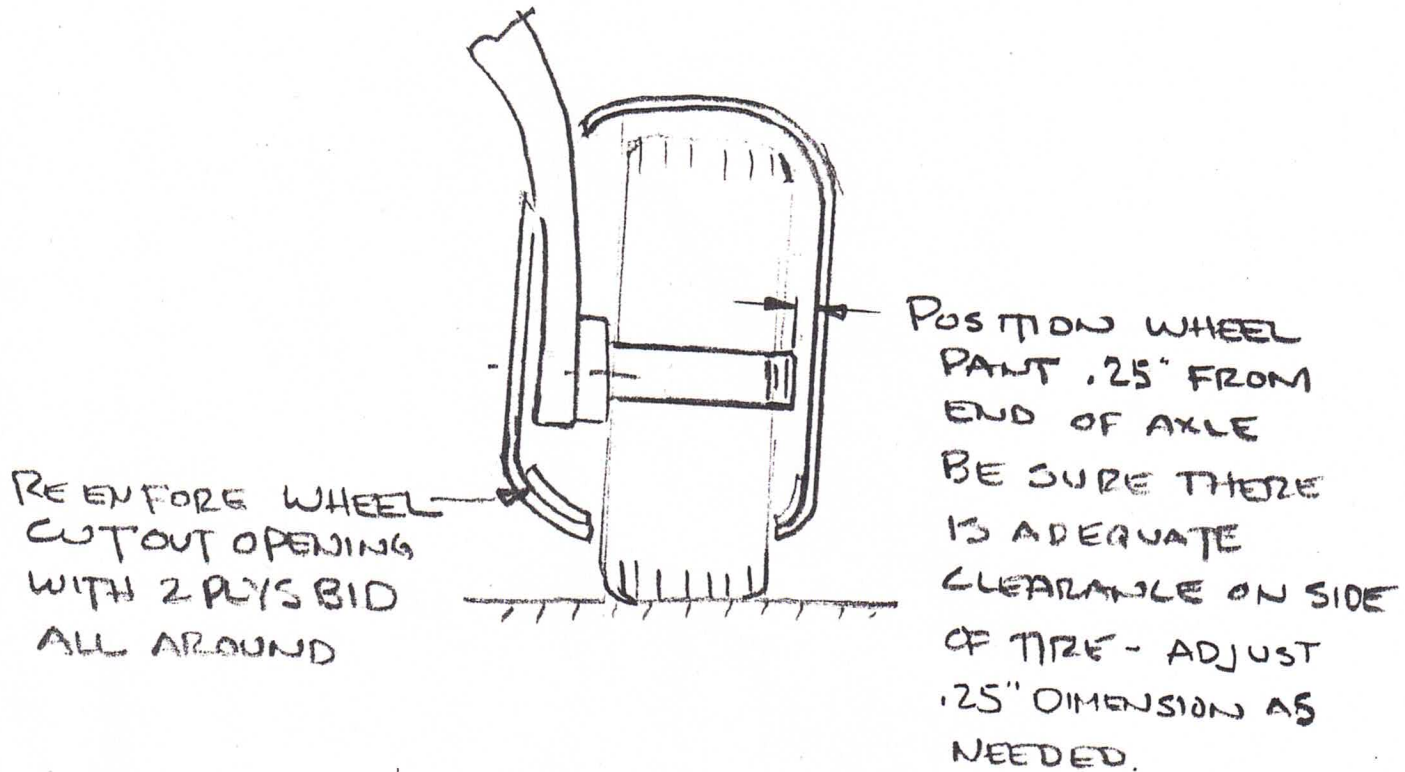 RE ENFORE WHEEL
CUTOUT OPENING
WITH 2 PLYS BID
ALL AROUND
POSITION WHEEL
PANT .25" FROM
END OF AXLE
BE SURE THERE
IS ADEQUATE
CLEARANCE ON SIDE
OF TIRE - ADJUST
.25" DIMENSION AS
NEEDED.